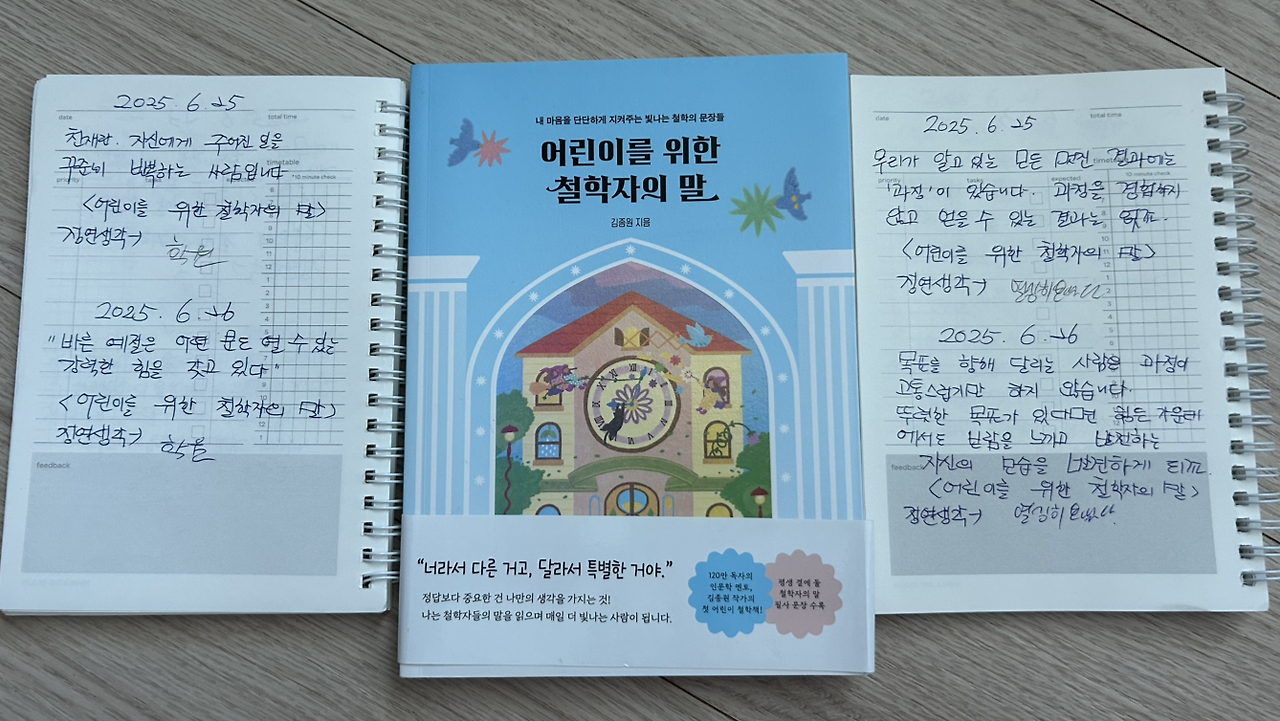 2025. 6. 25
date
total time
천재란. 자신에게 주어진 일을
꾸준히 반복하는 사람입니다.
timetable
priority
*10 minute check
<어린이를 위한 철학자의 말>
정연생각→
2025. 6. 26
"바른 예절은 어떤 문도 열 수 있는
강력한 힘을 갖고 있다"
<어린이를 위한 철학자의 말>
정연생각→
feedback
내 마음을 단단하게 지켜주는 빛나는 철학의 문장들
어린이를 위한
철학자의 말
김종원 지음
"너라서 다른 거고, 달라서 특별한 거야."
정답보다 중요한 건 나만의 생각을 가지는 것!
나는 철학자들의 말을 읽으며 매일 더 빛나는 사람이 됩니다.
120만 독자의
인문학 멘토,
김종원 작가의
첫 어린이 철학책!
평생 곁에 둘
철학자의 말
필사 문장 수록
2025. 6. 25
date
total time
우리가 알고 있는 모든 멋진 결과에는
priority
tasks
expected
*10 minute check
'과정'이 있습니다. 과정을 경험하지
않고 얻을 수 있는 결과는 없죠.
<어린이를 위한 철학자의 말>
정연생각→
2025. 6. 26
목표를 향해 달리는 사람은 과정이
고통스럽지만 하지 않습니다.
뚜렷한 목표가 있다면 힘든 가운데
에서도 보람을 느끼고 발전하는
feedback
자신의 모습을 발견하게 되죠.
<어린이를 위한 철학자의 말>
정연생각→